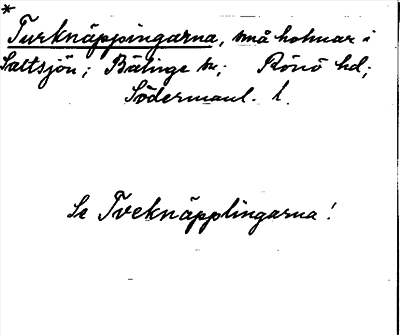 *
Turknäppingarna, små holmar i
Saltsjön; Bälinge sn; Rönö hd;
Södermanl. l.
Se Tveknäpplingarna!